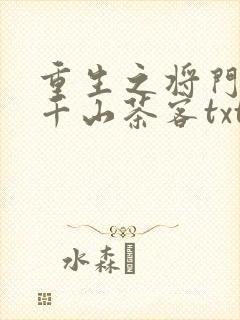 重生之将门
千山茶客txt
水森